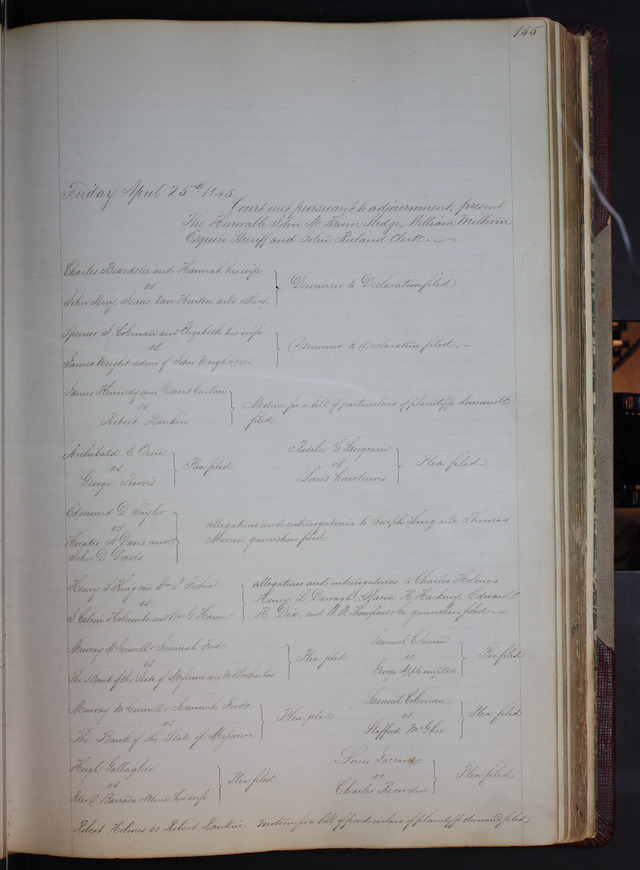 155
Friday April 25th 1845
Court met pursuant to adjournment, present
The Honorable John M. Krum Judge, William Milburn
Esquire Sheriff and John Ruland Clerk.
Charles Beardslee and Hannah his wife
vs
John Perry, Isaac Van Houten and others
Demurrer to Declaration filed
Spencer J. Coleman and Elizabeth his wife
vs
James Wright admr of John
Demurrer to Declaration filed.
James Kennedy and David
vs
Robert Rankin
Motion for a bill of particulars of plaintiffs demand
filed.
Archibald E Orme
vs
George
Plea filed
Rodolie G
vs
Louis
Plea filed
Edmund D Taylor
vs
Horatio N Davis and
John D Davis
allegations and interrogatories to Joseph Long and Thomas
garnishees filed
Henry S King and Wm P Fisher
vs
J. Calvin Holcombe and Wm G Hann
allegations and interrogatories to Charles Holmes
Henry L Darragh, H. Edward
H. Dix, and W. W. Thompson garnishees filed.
Murray McConnell & Jeremiah
vs
The Bank of the State of Missouri and
Plea filed
Samuel Coleman
vs
Plea filed
Murray McConnell & Jeremiah
vs
The Bank of the State of Missouri
Plea filed
Samuel Coleman
vs
Stafford McGhee
Plea filed
Hugh Gallagher
vs
Peter D Barrada his wife
Plea filed
Louis Jaccard
vs
Charles
Plea filed
Robert Holmes vs Robert Rankin. Motion for a bill of particulars of plaintiffs demand filed